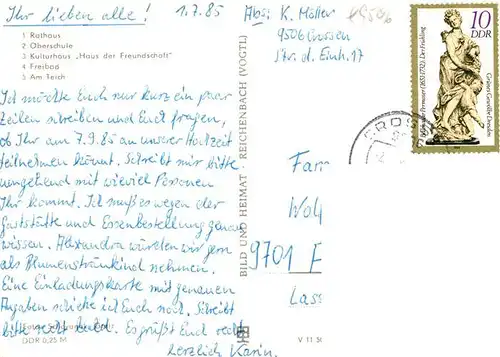 Ihr lieben alle! 1.7.85
1 Rathaus
2 Oberschule
3 Kulturhaus „Haus der Freundschaft"
4 Freibad
5 Am Teich
Ich möchte Euch nur kurz ein paar
Zeilen schreiben und Euch fragen,
ob Ihr am 7.9.85 an unserer Hochzeit
teilnehmen könnt. Schreibt mir bitte
umgehend mit wieviel Personen
Ihr kommt. Ich muß es wegen der
Gaststätte und Essenbestellung genau
wissen. Alexandra würden wir gern
als Blumenstreukind nehmen.
Eine Einladungskarte mit genauen
Angaben schicke ich Euch noch. Schreibt
bitte recht bald. Es grüßt Euch recht
herzlich Karin.
DDR 0,25 M
BILD UND HEIMAT · REICHENBACH (VOGTL)
V 11 50
Abs: K. Möller
9506 Crossen
Str. d. Einh. 17
10
DDR
Balthasar Permoser (1651-1732), Der Frühling
Grünes Gewölbe Dresden
CROS
Fam
Wol
9701 F
Lass